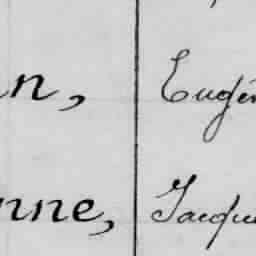 in, Eugén
nne, Jacqu